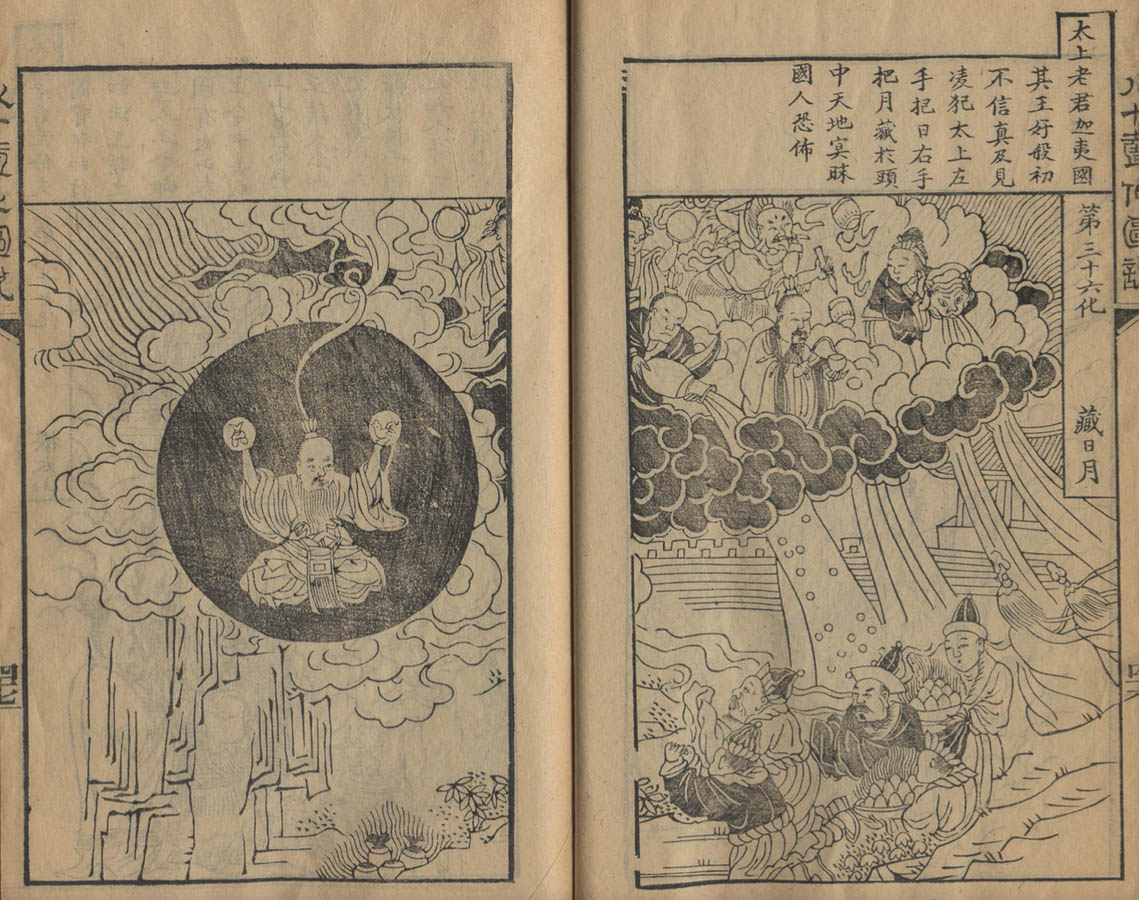 太上老君迦夷國
其王好殺初
不信真及見
凌犯太上左
手把日右手
把月藏於頭
中天地冥昧
國人恐佈
第三十六化 藏日月
八十壹化圖說